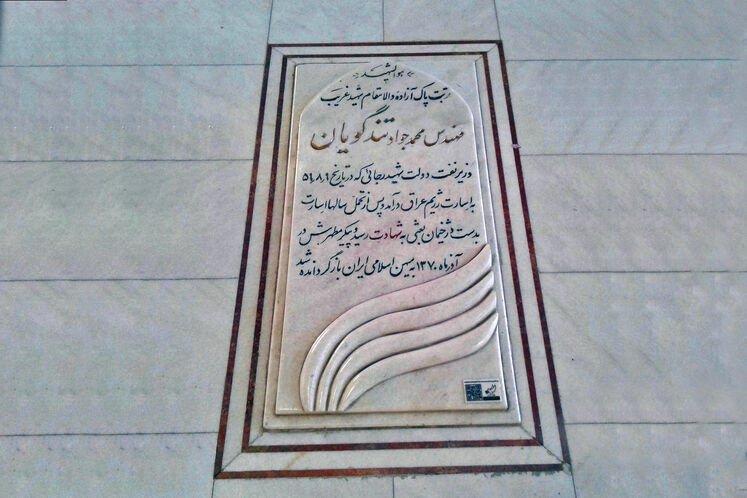 هو الشهید
تربت پاک آزاده والامقام شهید غریب
مهندس محمد جواد تندگویان
وزیر نفت دولت شهید رجائی که در تاریخ ۵۹/۸/۹
به اسارت رژیم عراق درآمد و پس از تحمل سالها اسارت
بدست دژخیمان بعثی به شهادت رسید و پیکر مطهرش در
آذر ماه ۱۳۷۰ به میهن اسلامی ایران بازگردانده شد